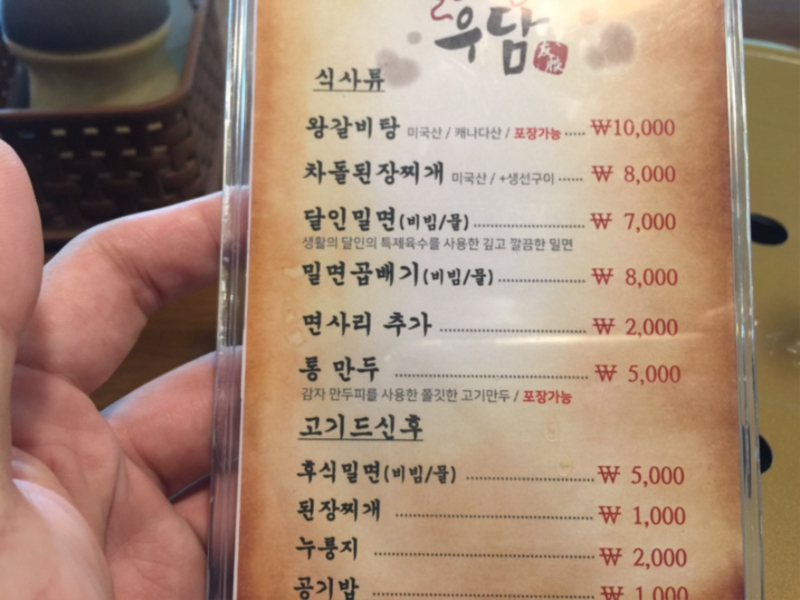 우담
식사류
왕갈비탕 미국산 / 캐나다산 / 포장가능 ····· ₩10,000
차돌된장찌개 미국산 / +생선구이 ······ ₩ 8,000
달인밀면(비빔/물) ₩ 7,000
생활의 달인의 특제육수를 사용한 깊고 깔끔한 밀면
밀면곱배기(비빔/물) ₩ 8,000
면사리 추가 ₩ 2,000
통 만두 ₩ 5,000
감자 만두피를 사용한 쫄깃한 고기만두 / 포장가능
고기드신후
후식밀면(비빔/물) ₩ 5,000
된장찌개 ₩ 1,000
누룽지 ₩ 2,000
공기밥 ₩ 1,000